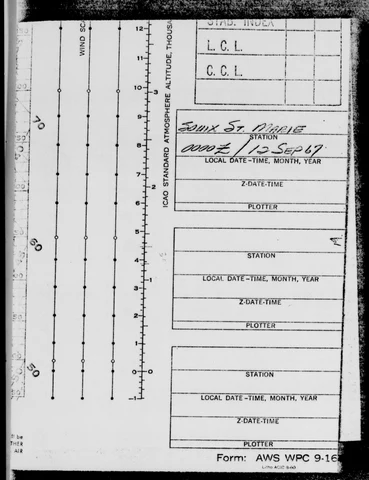 STAB. INDEX
L. C. L.
C. C. L.
WIND SC
ICAO STANDARD ATMOSPHERE ALTITUDE, THOUSA
12
11
10
9
8
7
6
5
4
3
2
1
0
-1
3
2
1
0
70
60
50
SOUIX ST. MARIE
STATION
0000Z / 12 SEP 67
LOCAL DATE-TIME, MONTH, YEAR
Z-DATE-TIME
PLOTTER
STATION
LOCAL DATE-TIME, MONTH, YEAR
Z-DATE-TIME
PLOTTER
STATION
LOCAL DATE-TIME, MONTH, YEAR
Z-DATE-TIME
PLOTTER
be
THER
AIR
Form: AWS WPC 9-16